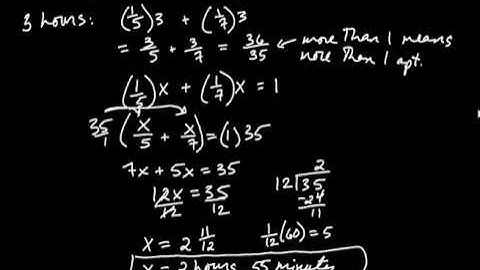 3 hours: (1/5)3 + (1/7)3
= 3/5 + 3/7 = 36/35 ← more than 1 means
more than 1 apt.
(1/5)x + (1/7)x = 1
35/1 (x/5 + x/7) = (1)35
7x + 5x = 35
12x/12 = 35/12
2
12)35
-24
11
x = 2 11/12
1/12(60) = 5
x = 2 hours 55 minutes